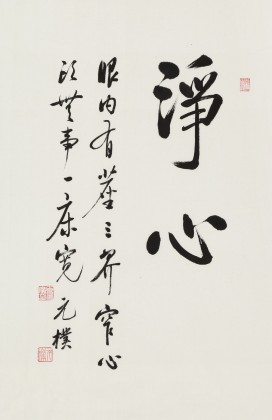 淨心
眼内有塵三界窄心
頭無事一床寬元樸